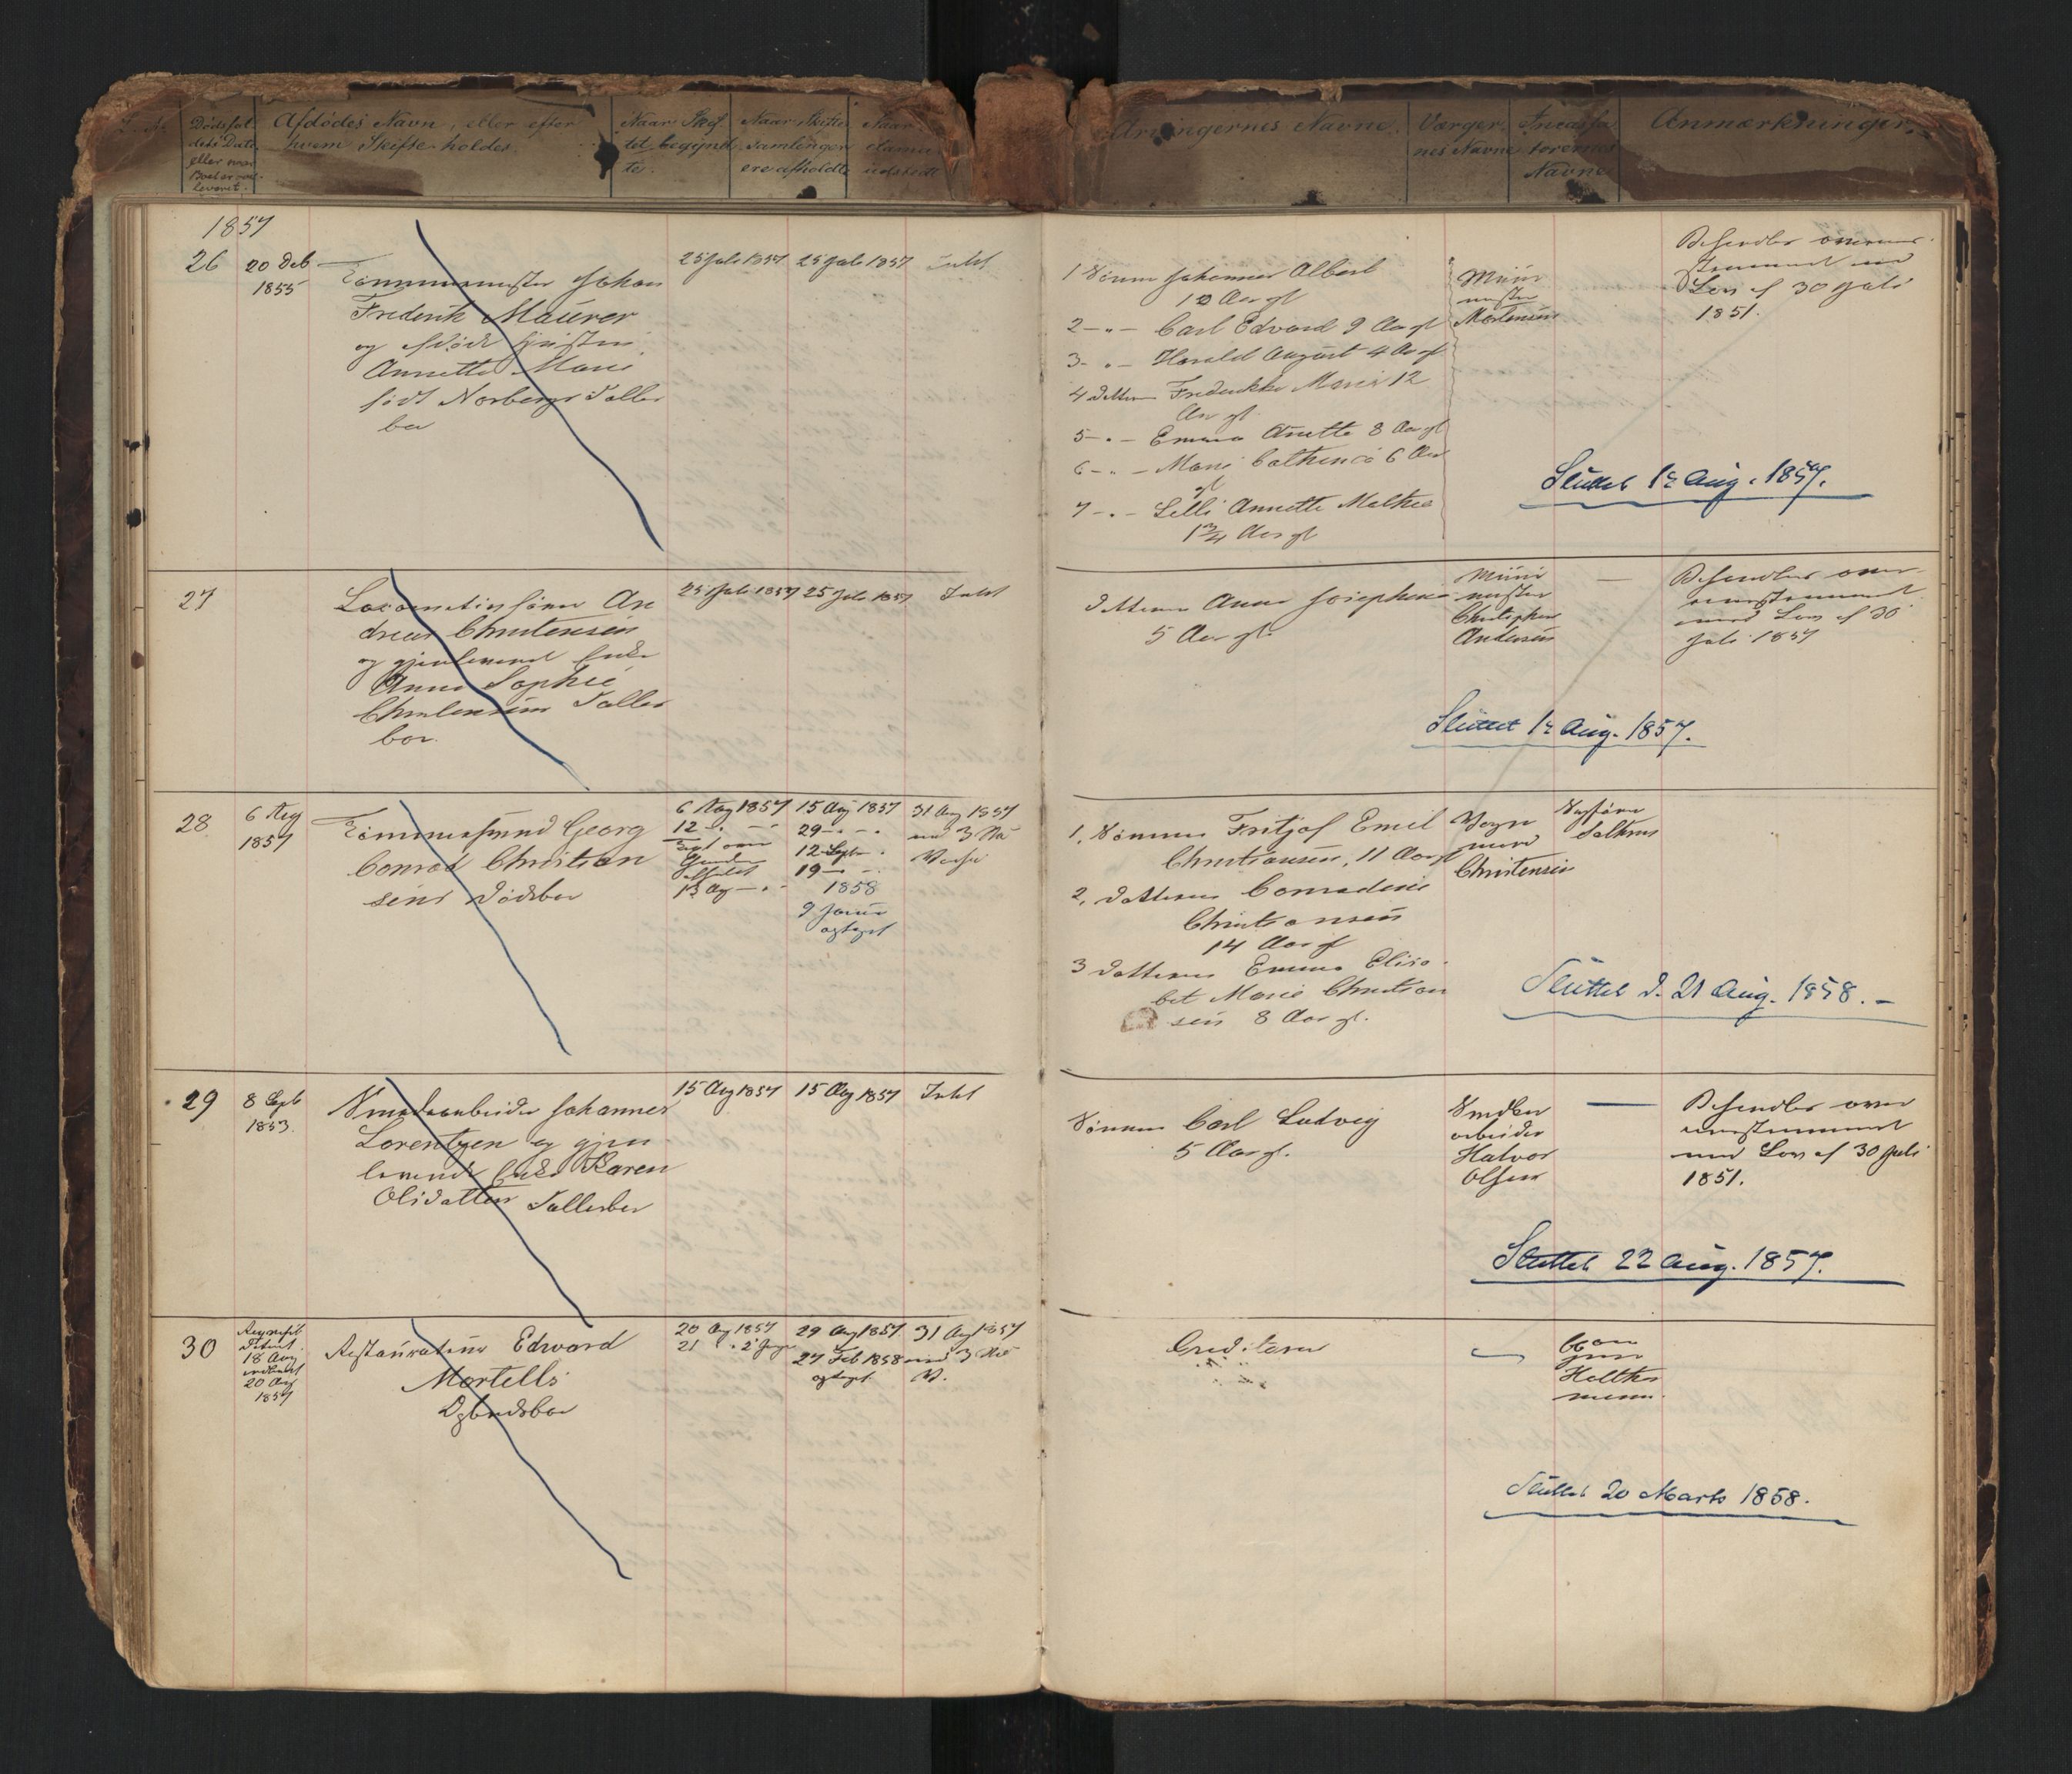 Dødsfal-
dets Dato
eller over
Boet er over
leveret.
Afdødes Navn, eller efter
hvem Skifte holdes.
Naar Skif-
tet begynd-
te.
Naar Skifte
samlinger
ere afholdte
Naar
udstedt
Arvingernes Navne.
Værger-
nes Navne
Incassa-
torernes
Navne
Anmærkninger.
1857
26
20 Deb
1855
Tømmermester Johan
Frederik Maurer
og afdøde Hustru
Annette Marie
født Norbergs Fælles
bo
25 Juli 1857
25 Juli 1857
Intet
1 Sønnen Johannes Albert
10 Aar gl
2 - " - Carl Edvard 9 Aar gl
3 - " - Harald August 4 Aar gl
4 Datteren Fredrikke Marie 12
Aar gl.
5 - " - Emma Anette 8 Aar gl
6 - " - Marie Cathinca 6 Aar
gl
7 - " - Lilli Annette Mathea
1 3/4 Aar gl
Muur
mester
Mortensen
Behandles overens-
stemmende med
Lov af 30 Juli
1851.
Sluttet 1' Aug. 1857.
27
Locomotivfører An
dreas Christensen
og gjenlevende Enke
Anne Sophie
Christensens Fælles
bo.
25 Juli 1857
25 Juli 1857
Intet
Datteren Anna Josephine
5 Aar gl.
Muur
mester
Christopher
Andersen
—
Behandles over-
eensstemmende
med Lov af 30
Juli 1857
Sluttet 1' Aug. 1857.
28
6 Aug
1857
Tømmermand Georg
Conrad Christian
sens Dødsbo
6 Aug 1857
12 - " -
15 Aug - " -
15 Aug 1857
29 - " -
12 Septr - "
19 - " -
1858
9 Januar
optaget
31 Aug 1857
med 3 Mds
Varsel
1, Sønnen Fritjof Emil
Christiansen, 11 Aar gl
2, Datteren Conradine
Christiansen
14 Aar gl
3 Datteren Emma Elisa-
bet Marie Christian
sen 8 Aar gl.
Vogn
mand
Christensen
Sagfører
Sluttet d. 21 Aug. 1858. -
29
8 Septb
1853.
Smedearbeider Johannes
Lorentzen og gjen
levende Enke Karen
Olsdatters Fællesbo
15 Aug 1857
15 Aug 1857
Intet
Sønnen Carl Ludvig
5 Aar gl.
Smede
arbeider
Halvor
Olsen
—
Behandles over
eensstemmende
med Lov af 30 Juli
1851.
Sluttet 22 Aug. 1857.
30
18 Aug
20 Aug
1857
Restauratør Edward
Mortells
Opbudsbo
20 Aug 1857
21 - " - 2' Gang
29 Aug 1857.
27 Feb 1858
optaget
31 Aug 1857
med 3 Mds
V.
Creditorer
Sluttet 20 Marts 1858.